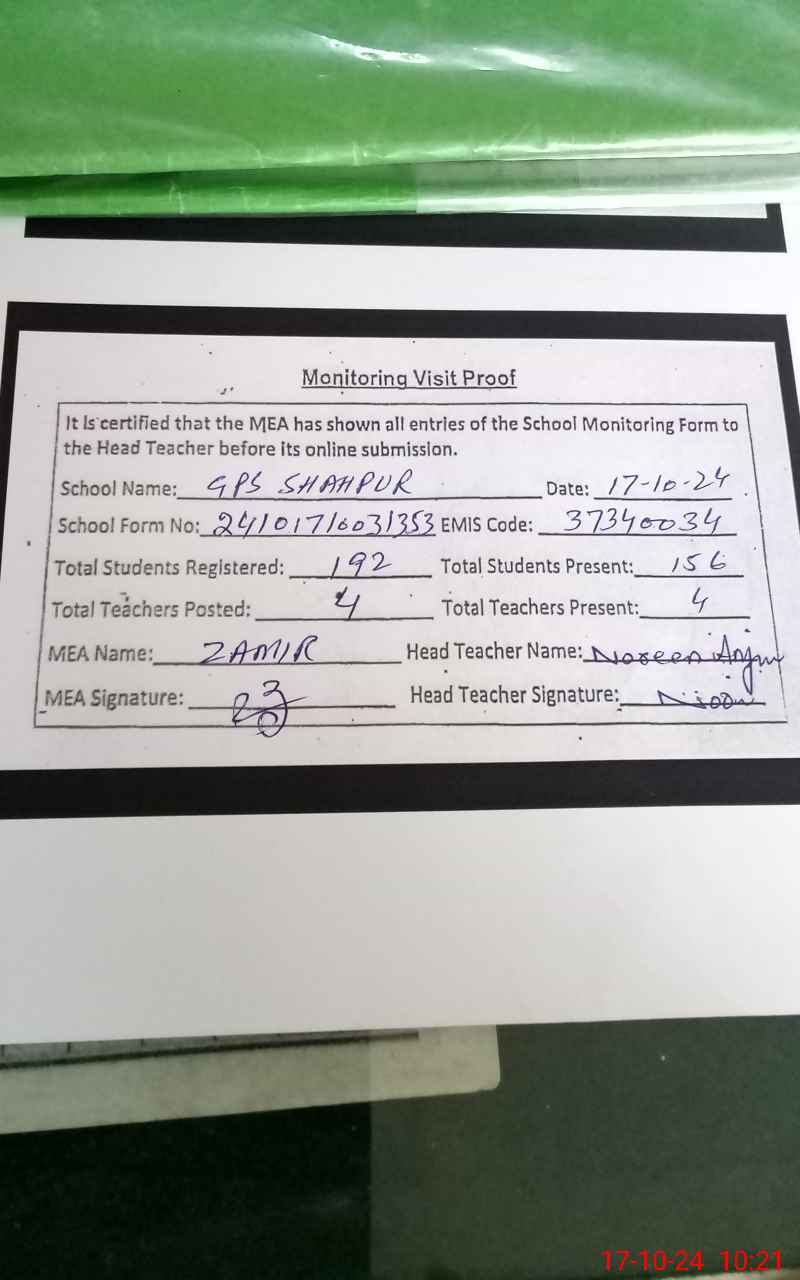 Monitoring Visit Proof
It is certified that the MEA has shown all entries of the School Monitoring Form to
the Head Teacher before its online submission.
School Name: GPS SHAHPUR Date: 17-10-24
School Form No: 24101716031353 EMIS Code: 37340034
Total Students Registered: 192 Total Students Present: 156
Total Teachers Posted: 4 Total Teachers Present: 4
MEA Name: ZAMIR Head Teacher Name: Noreen Anjum
MEA Signature: Head Teacher Signature:
17-10-24 10:21